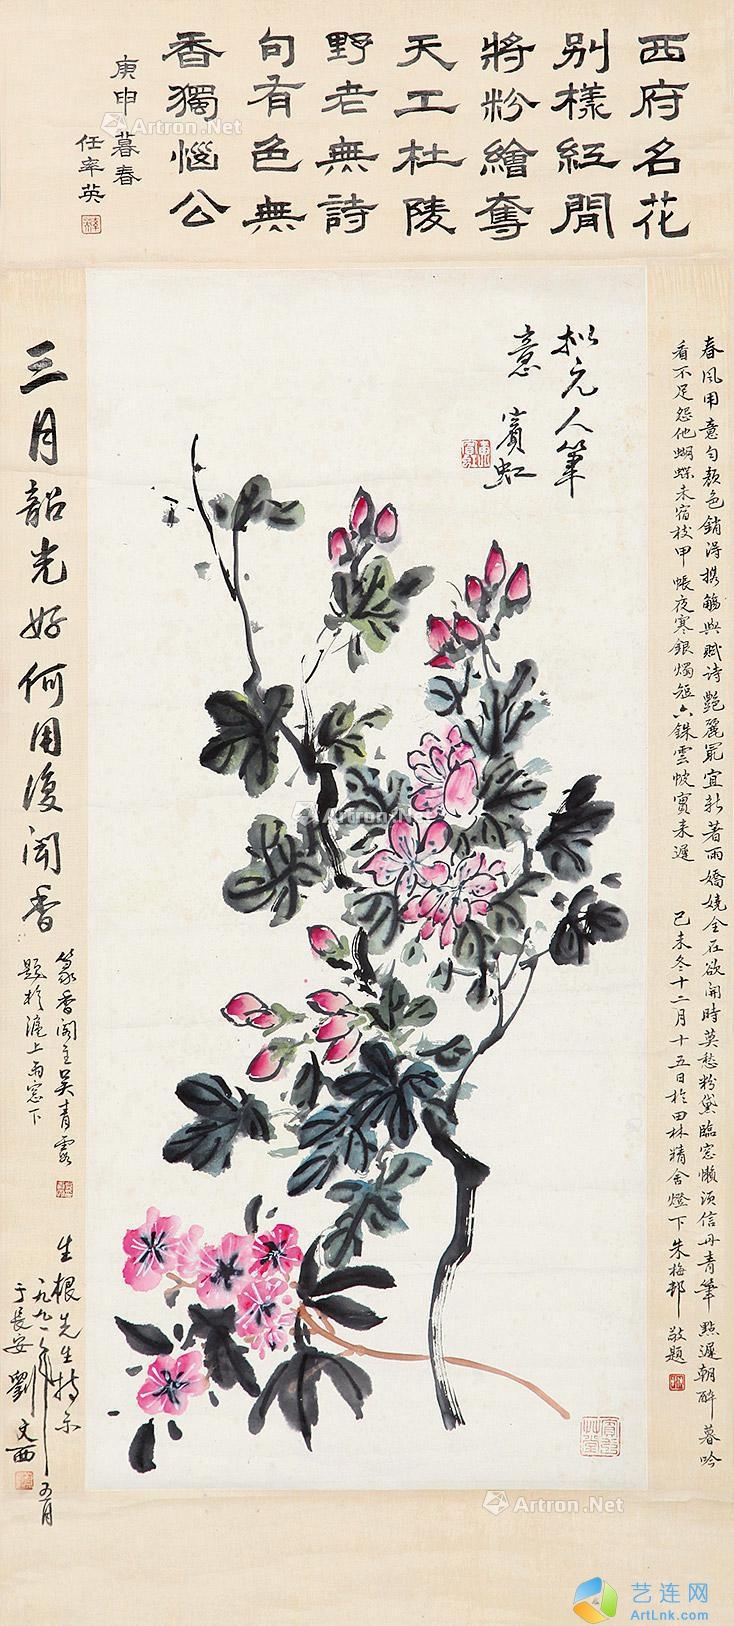 西府名花
別樣紅閒
將粉繪奪
天工杜陵
野老無詩
句有色無
香獨惱公
庚申暮春
任率英
拟元人筆
意 賓虹
春風用意勻顏色銷得携觴與賦诗艷麗最宜新著雨嬌嬈全在欲開時莫愁粉黛臨窓懶須信丹青筆點遲朝醉暮吟
看不足怨他蝴蝶未宿枝甲帳夜寒銀燭短六銖雲帔實来遲 己未冬十二月十五日於田林精舍燈下朱梅邨敬題
三月韶光好何用復聞香
篆香阁主吴青霞
題於滬上雨窓下
生根先生持示
一九九一年五月
于長安 劉文西
Artron.Net
Artron.Net
Artron.Net
艺连网
ArtLnk.com